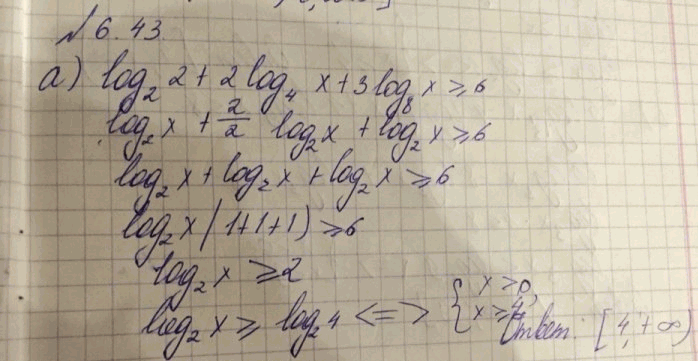 № 6.43
а) log₂ 2 + 2 log₄ x + 3 log₈ x ⩾ 6
log₂ x + 2/2 log₂ x + log₂ x ⩾ 6
log₂ x + log₂ x + log₂ x ⩾ 6
log₂ x (1+1+1) ⩾ 6
log₂ x ⩾ 2
log₂ x ⩾ log₂ 4 <=> { x > 0, x ⩾ 4, Ответ: [4, +∞)